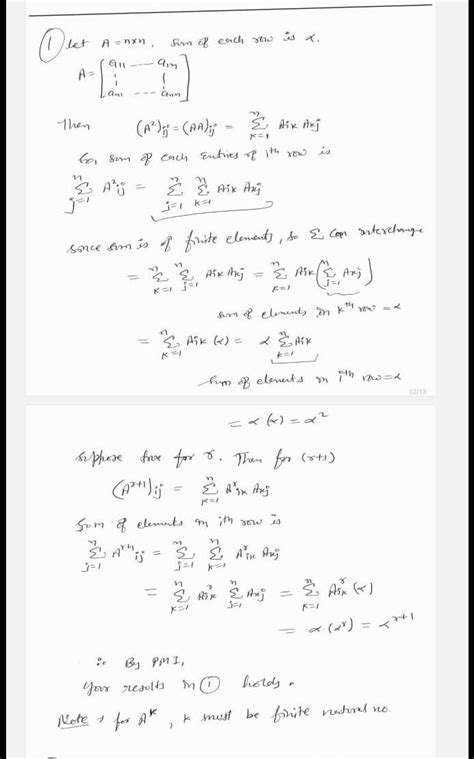 ① let A = n×n, sum of each row is α.
A = [a11 ---- a1n
an1 --- ann]
Then (A²)ij = (AA)ij = n∑k=1 Aik Akj
So, sum of each entries of ith row is
n∑j=1 A²ij = n∑j=1 n∑k=1 Aik Akj
Since sum is of finite elements, so ∑ can interchange
= n∑k=1 n∑j=1 Aik Akj = n∑k=1 Aik (n∑j=1 Akj)
sum of elements in kth row = α
= n∑k=1 Aik (α) = α n∑k=1 Aik
Sum of elements in ith row = α
12/13
= α(α) = α²
Suppose true for r. Then for (r+1)
(A^r+1)ij = n∑k=1 A^r ik Akj
Sum of elements in ith row is
n∑j=1 A^r+1 ij = n∑j=1 n∑k=1 A^r ik Akj
= n∑k=1 A^r ik n∑j=1 Akj = n∑k=1 A^r ik (α)
= α·(α^r) = α^r+1
∴ By PMI,
Your results in ① holds.
Note → for A^k, k must be finite natural no.